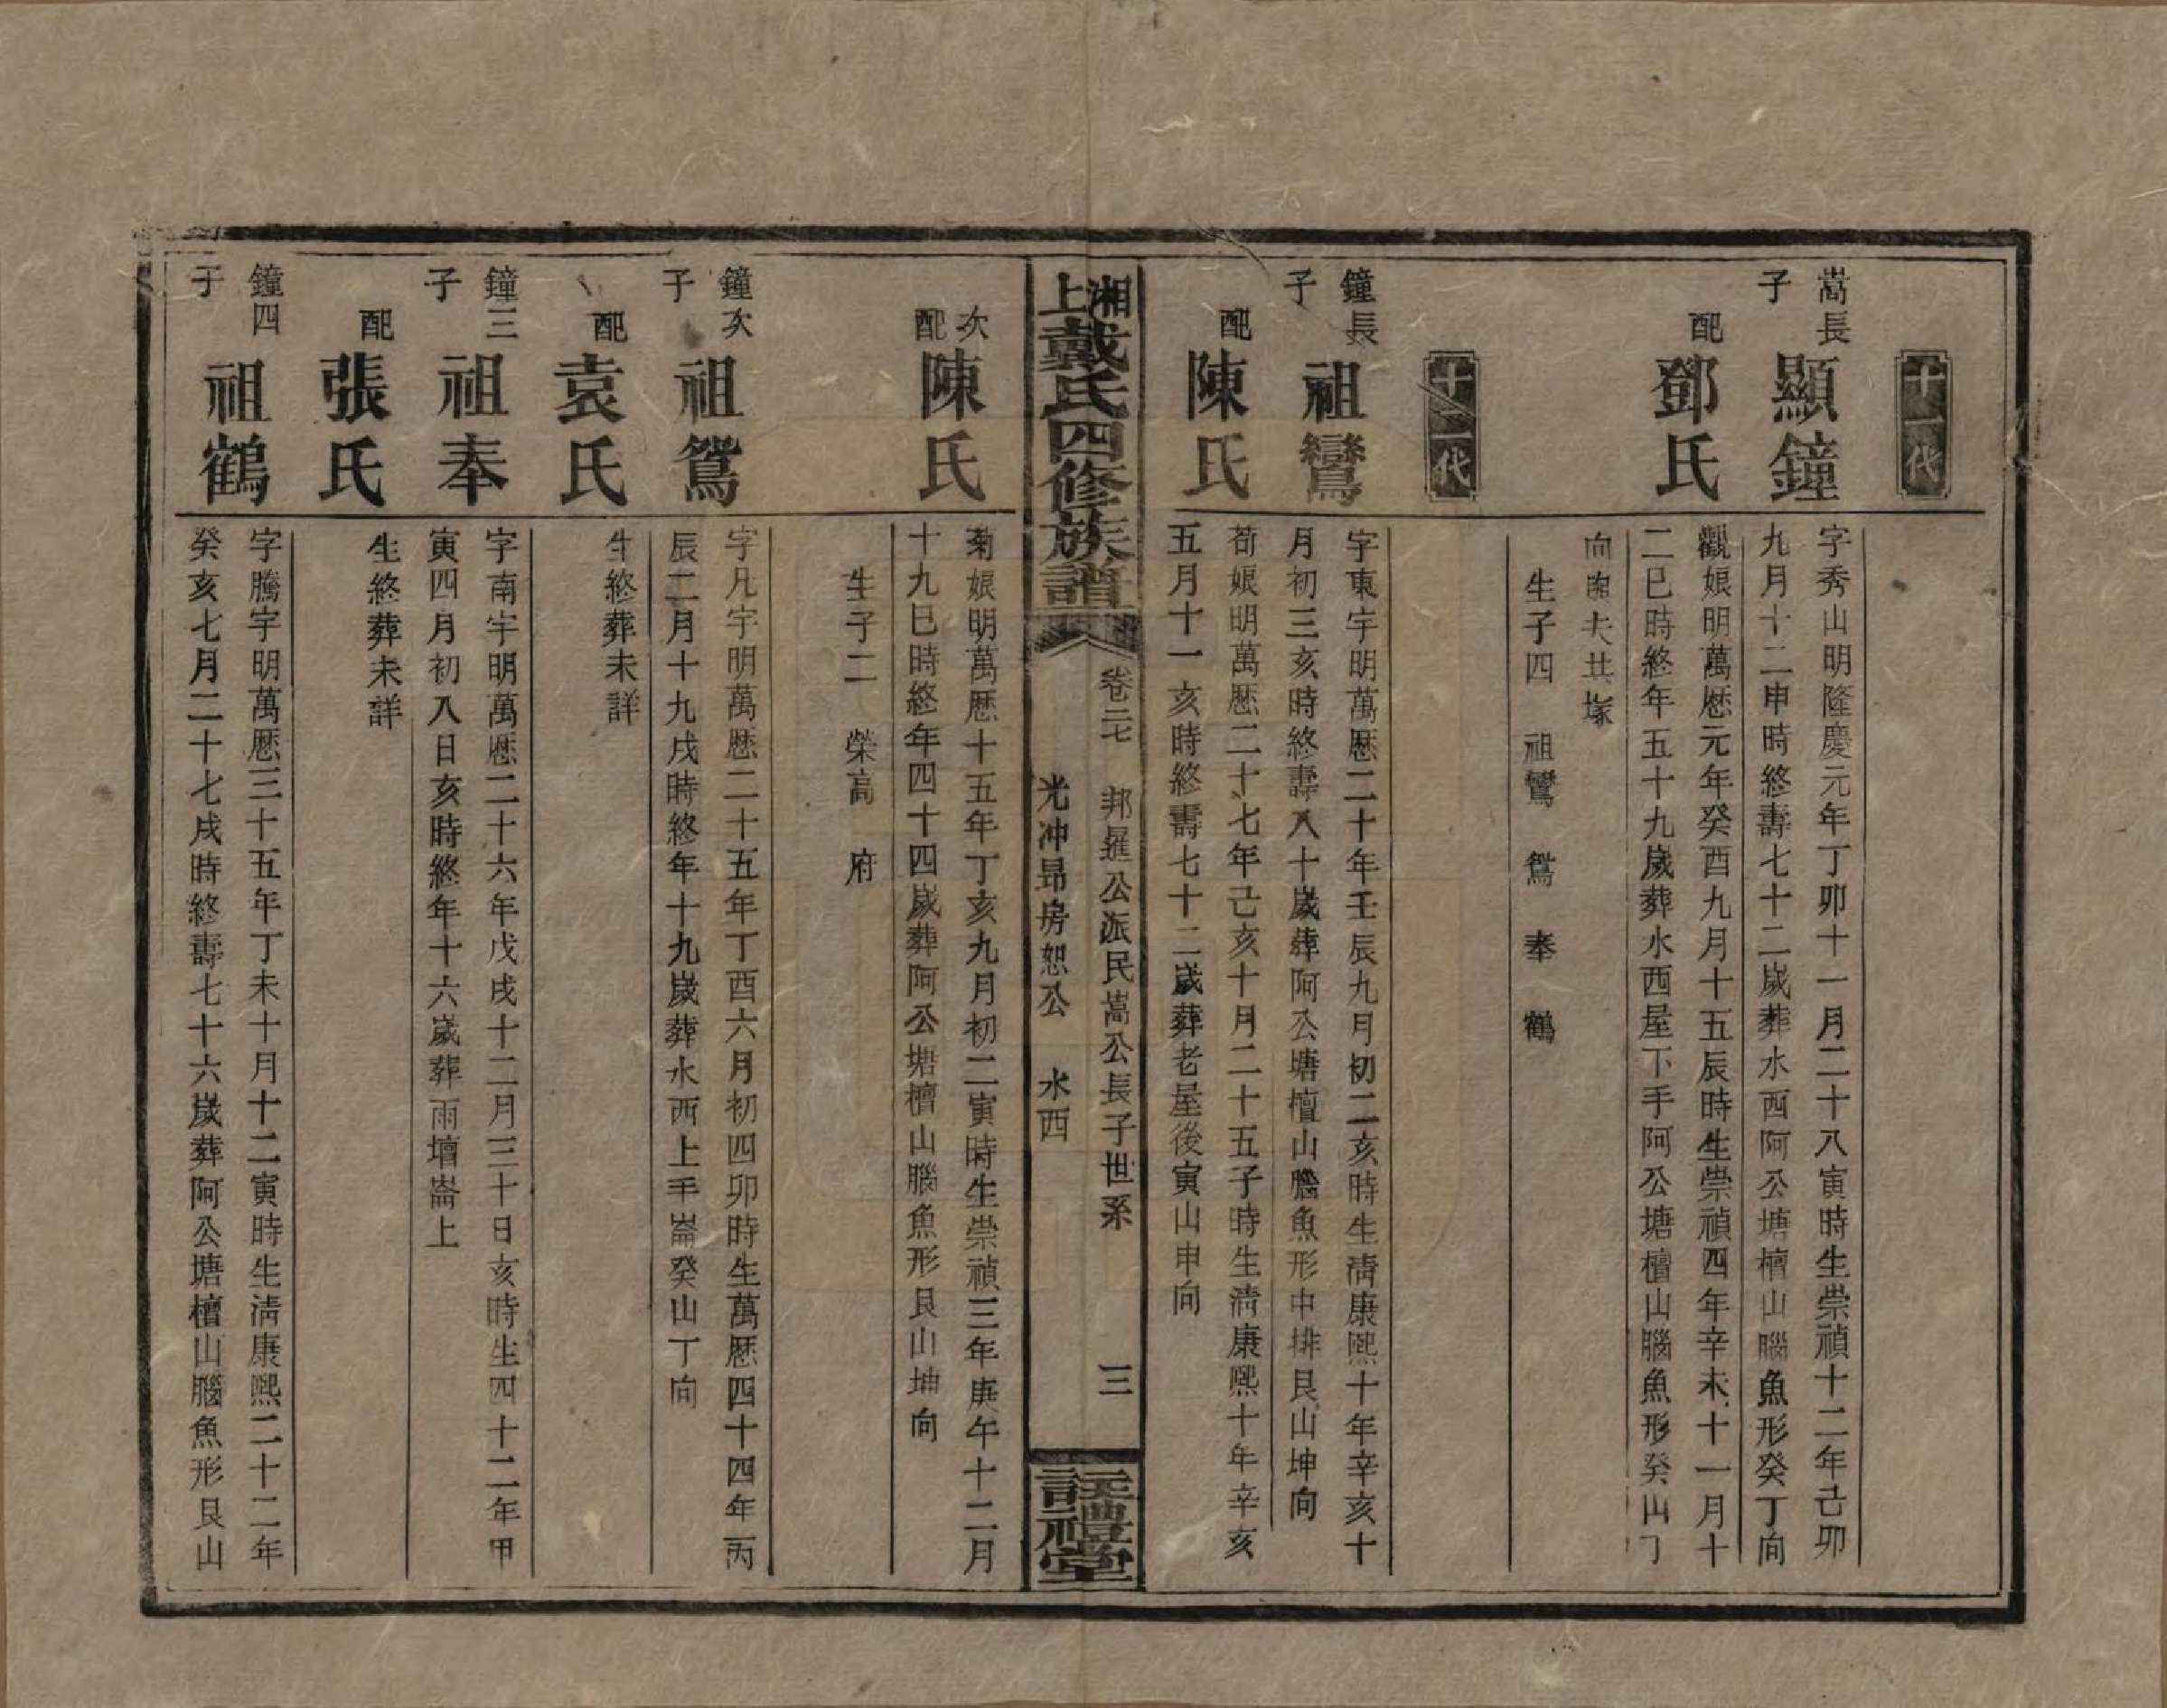 十一代
嵩長子
顯鐘
字秀山明隆慶元年丁卯十一月二十八寅時生崇禎十二年己卯
九月十二申時終壽七十二歲葬水西阿公塘檀山腦魚形癸丁向
配
鄧氏
觀娘明萬厯元年癸酉九月十五辰時生崇禎四年辛未十一月十
二巳時終年五十九歲葬水西屋下手阿公塘檀山腦魚形癸山丁
向與夫共塚
生子四 祖鸞 鴛 奉 鶴
十二代
鐘長子
祖鸞
字東宇明萬厯二十年壬辰九月初二亥時生清康熙十年辛亥十
月初三亥時終壽八十歲葬阿公塘檀山腦魚形中排艮山坤向
配
陳氏
荀娘明萬厯二十七年己亥十月二十五子時生清康熙十年辛亥
五月十一亥時終壽七十二歲葬老屋後寅山申向
湘上戴氏四修族譜
卷二七 邦暹公派民嵩公長子世系 三
光冲昻房恕公 水西
註禮堂
次配
陳氏
菊娘明萬厯十五年丁亥九月初二寅時生崇禎三年庚午十二月
十九巳時終年四十四歲葬阿公塘檀山腦魚形艮山坤向
生子二 榮高 府
鐘次子
祖鴛
字凡宇明萬厯二十五年丁酉六月初四卯時生萬厯四十四年丙
辰二月十九戌時終年十九歲葬水西上手崙癸山丁向
配
袁氏
生終葬未詳
鐘三子
祖奉
字南宇明萬厯二十六年戊戌十二月三十日亥時生四十二年甲
寅四月初八日亥時終年十六歲葬雨壇崙上
配
張氏
生終葬未詳
鐘四子
祖鶴
字騰宇明萬厯三十五年丁未十月十二寅時生清康熙二十二年
癸亥七月二十七戌時終壽七十六歲葬阿公塘檀山腦魚形艮山